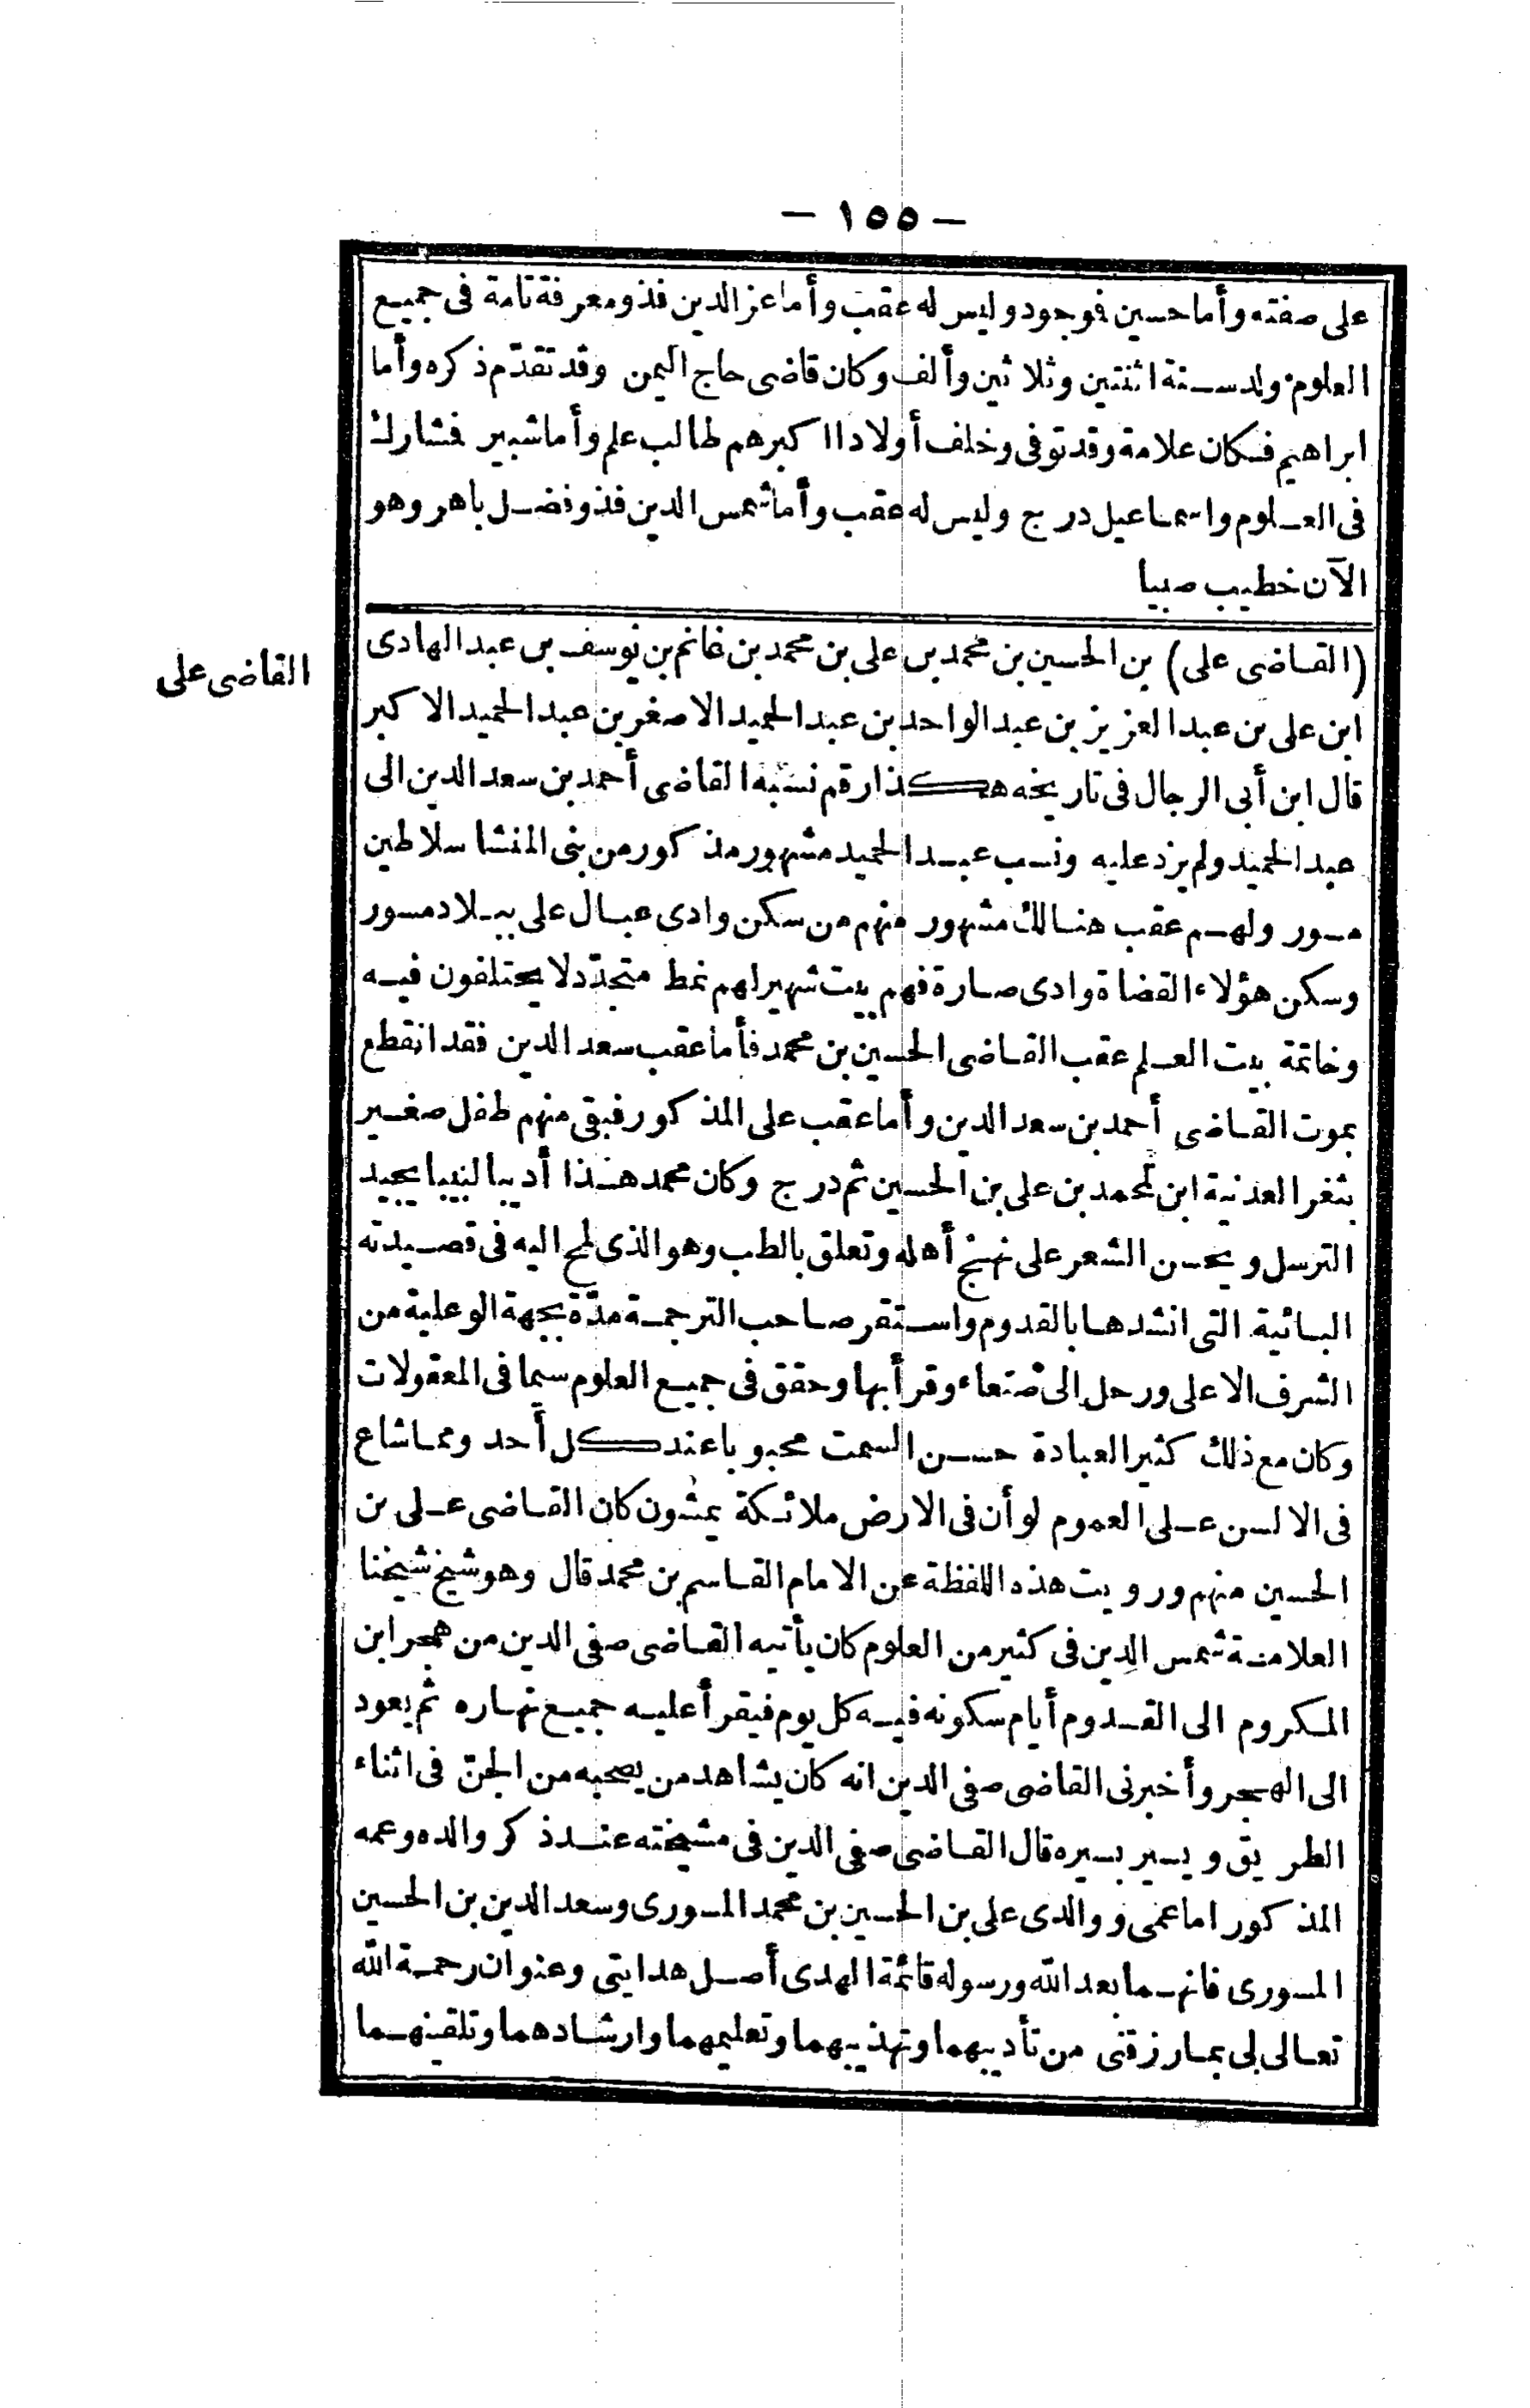 — ١٥٥ —
على صفته وأما حسين فوجود وليس له عقب وأما عز الدين فذو معرفة تامة فى جميع
العلوم ولد سنة اثنتين وثلاثين وألف وكان قاضى حاج اليمن وقد تقدّم ذكره وأما
ابراهيم فكان علامة وقد توفى وخلف أولادا اكبرهم طالب علم وأما شبير فشارك
فى العلوم واسماعيل درج وليس له عقب وأما شمس الدين فذو فضل باهر وهو
الآن خطيب صبيا
(القاضى على) بن الحسين بن محمد بن على بن محمد بن غانم بن يوسف بن عبد الهادى
القاضى على
ابن على بن عبد العزيز بن عبد الواحد بن عبد الحميد الاصغر بن عبد الحميد الاكبر
قال ابن أبى الرجال فى تاريخه هكذا رقم نسبه القاضى أحمد بن سعد الدين الى
عبد الحميد ولم يزد عليه ونسب عبد الحميد مشهور مذكور من بنى المنشا سلاطين
مسور ولهم عقب هنالك مشهور منهم من سكن وادى عبال على ببلاد مسور
وسكن هؤلاء القضاة وادى صارة فهم بيت شهير لهم نمط متجدّد لا يختلفون فيه
وخاتمة بيت العلم عقب القاضى الحسين بن محمد فأما عقب سعد الدين فقد انقطع
بموت القاضى أحمد بن سعد الدين وأما عقب على المذكور فبقى منهم طفل صغير
بثغر العدنية ابن لمحمد بن على بن الحسين ثم درج وكان محمد هذا أديبا لبيبا يجيد
الترسل ويحسن الشعر على نهج أهله وتعلق بالطب وهو الذى لمح اليه فى قصيدته
البائية التى انشدها بالقدوم واستقر صاحب الترجمة مدّة بجهة الوعلية من
الشرف الاعلى ورحل الى صنعاء وقرأ بها وحقق فى جميع العلوم سيما فى المعقولات
وكان مع ذلك كثير العبادة حسن السمت محبوبا عند كل أحد ومما شاع
فى الالسن على العموم لو أن فى الارض ملائكة يمشون كان القاضى على بن
الحسين منهم ورويت هذه اللفظة عن الامام القاسم بن محمد قال وهو شيخ شيخنا
العلامة شمس الدين فى كثير من العلوم كان يأتيه القاضى صفى الدين من هجر ابن
المكروم الى القدوم أيام سكونه فيه كل يوم فيقرأ عليه جميع نهاره ثم يعود
الى الهجر وأخبرنى القاضى صفى الدين انه كان يشاهد من يصحبه من الجنّ فى اثناء
الطريق ويسير بسيره قال القاضى صفى الدين فى مشيخته عند ذكر والده وعمه
المذكور اما عمى ووالدى على بن الحسين بن محمد المسورى وسعد الدين بن الحسين
المسورى فانهما بعد الله ورسوله قائمة الهدى أصل هدايتى وعنوان رحمة الله
تعالى لى بما رزقنى من تأديبهما وتهذيبهما وتعليمهما وارشادهما وتلقينهما